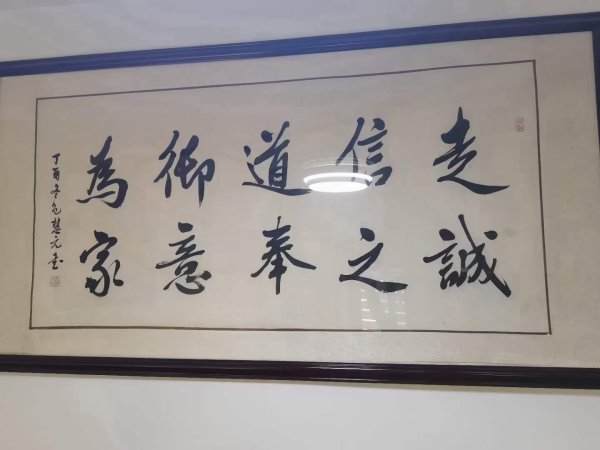 走誠
信之
道奉
御意
為家
丁酉冬慧元书